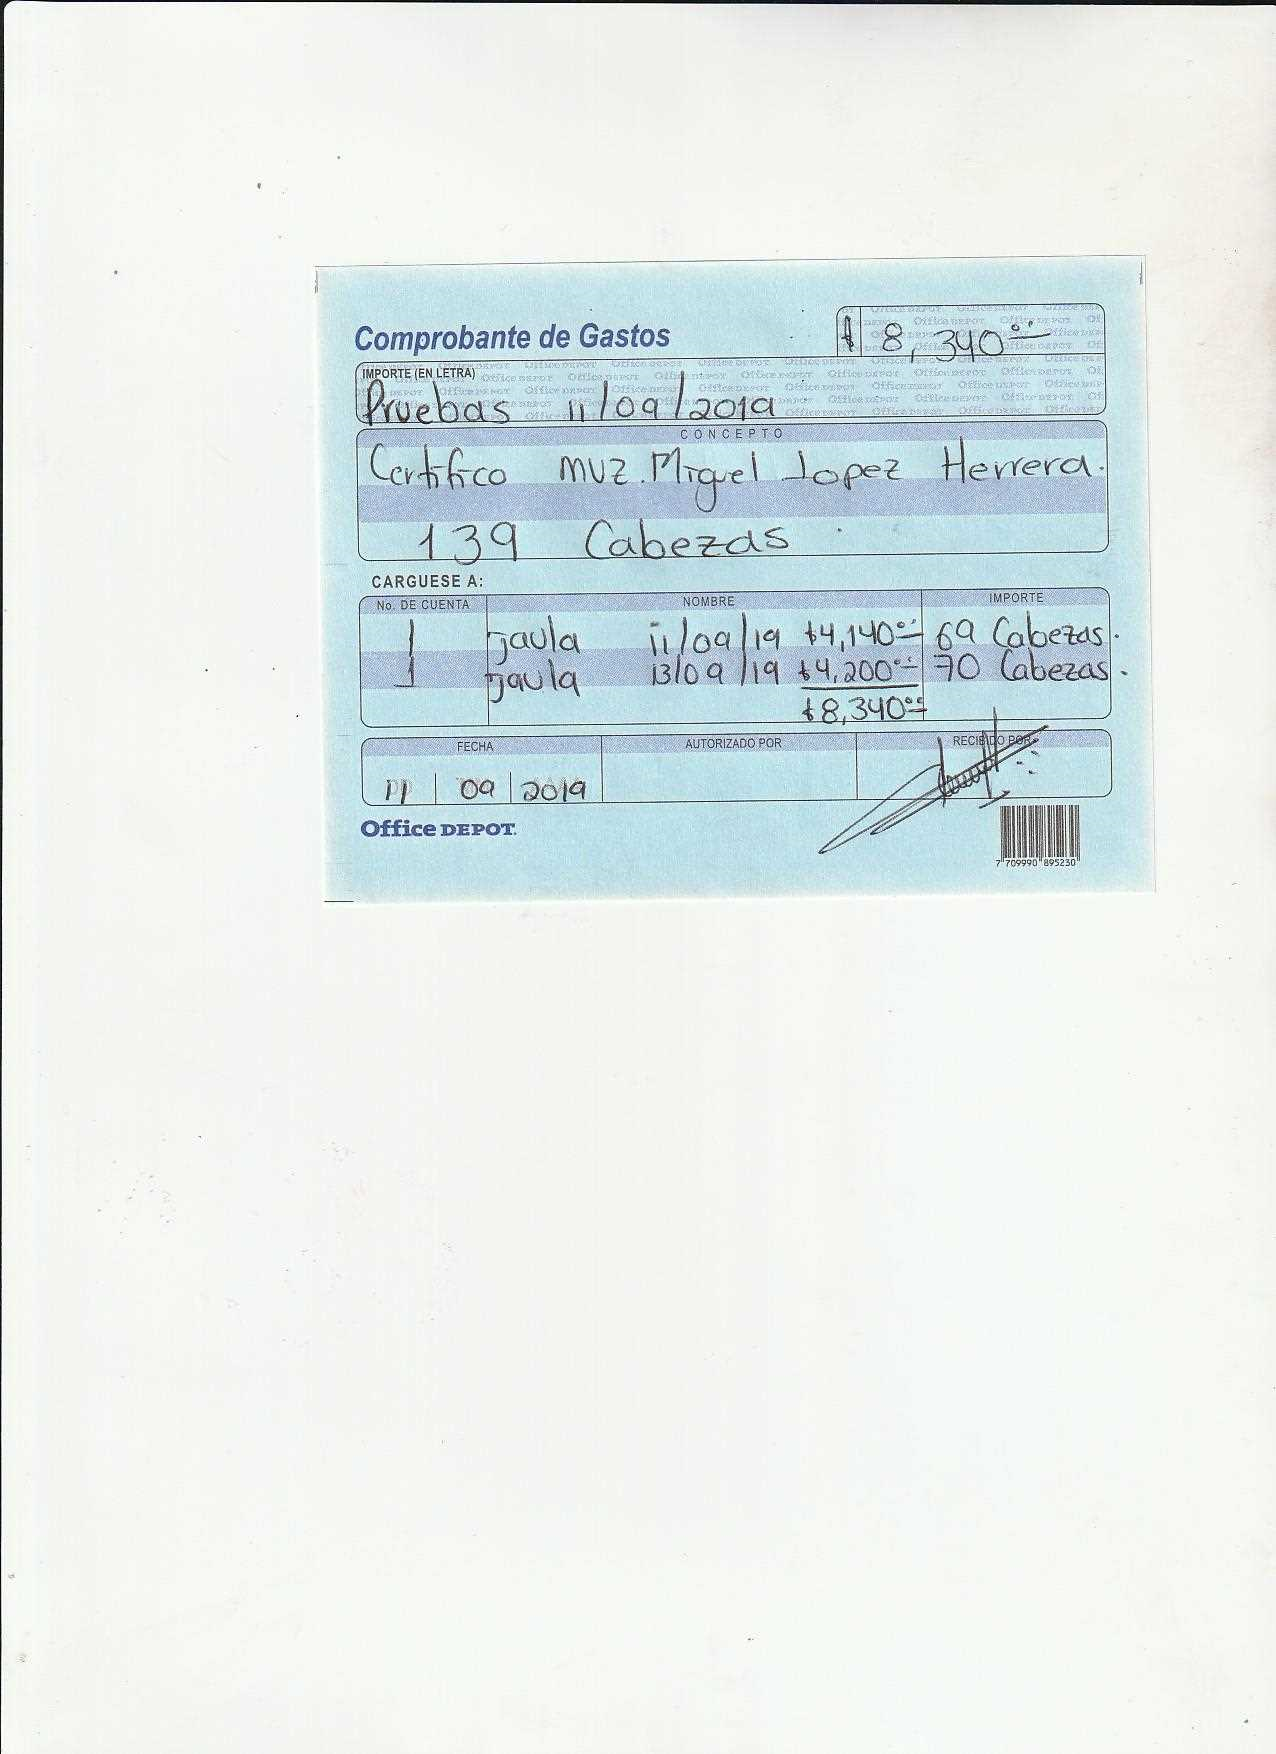 Comprobante de Gastos
$ 8,340.00
IMPORTE (EN LETRA)
Pruebas 11/09/2019
CONCEPTO
Certifico MVZ. Miguel Lopez Herrera.
139 Cabezas
CARGUESE A:
No. DE CUENTA NOMBRE IMPORTE
1 jaula 11/09/19 $4,140.00 69 Cabezas.
1 jaula 13/09/19 $4,200.00 70 Cabezas.
$8,340.00
FECHA AUTORIZADO POR RECIBIDO POR
11 09 2019
Office DEPOT.
7 709990 895230